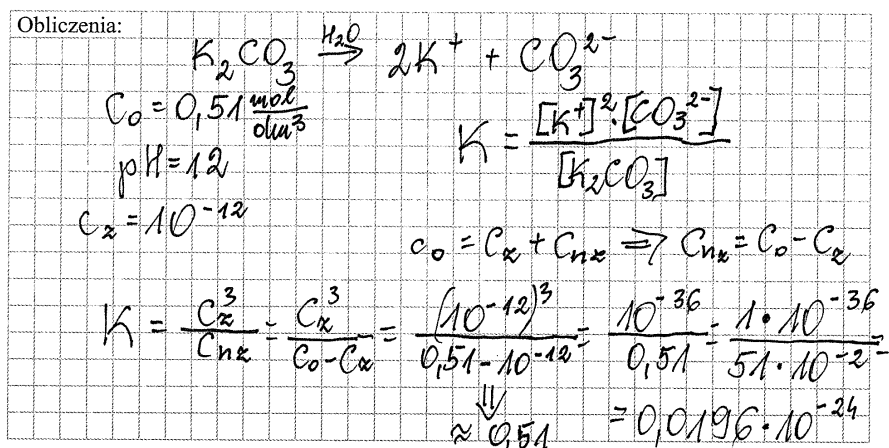 Obliczenia:
K₂CO₃ —H₂O→ 2K⁺ + CO₃²⁻
C₀ = 0,51 mol/dm³
K = [K⁺]²·[CO₃²⁻] / [K₂CO₃]
pH = 12
c_z = 10⁻¹²
c₀ = C_z + C_nz ⇒ C_nz = C₀ - C_z
K = C_z³ / C_nz = C_z³ / (C₀ - C_z) = (10⁻¹²)³ / (0,51 - 10⁻¹²) = 10⁻³⁶ / 0,51 = 1·10⁻³⁶ / 51·10⁻² =
⇓
≈ 0,51
= 0,0196·10⁻²⁴